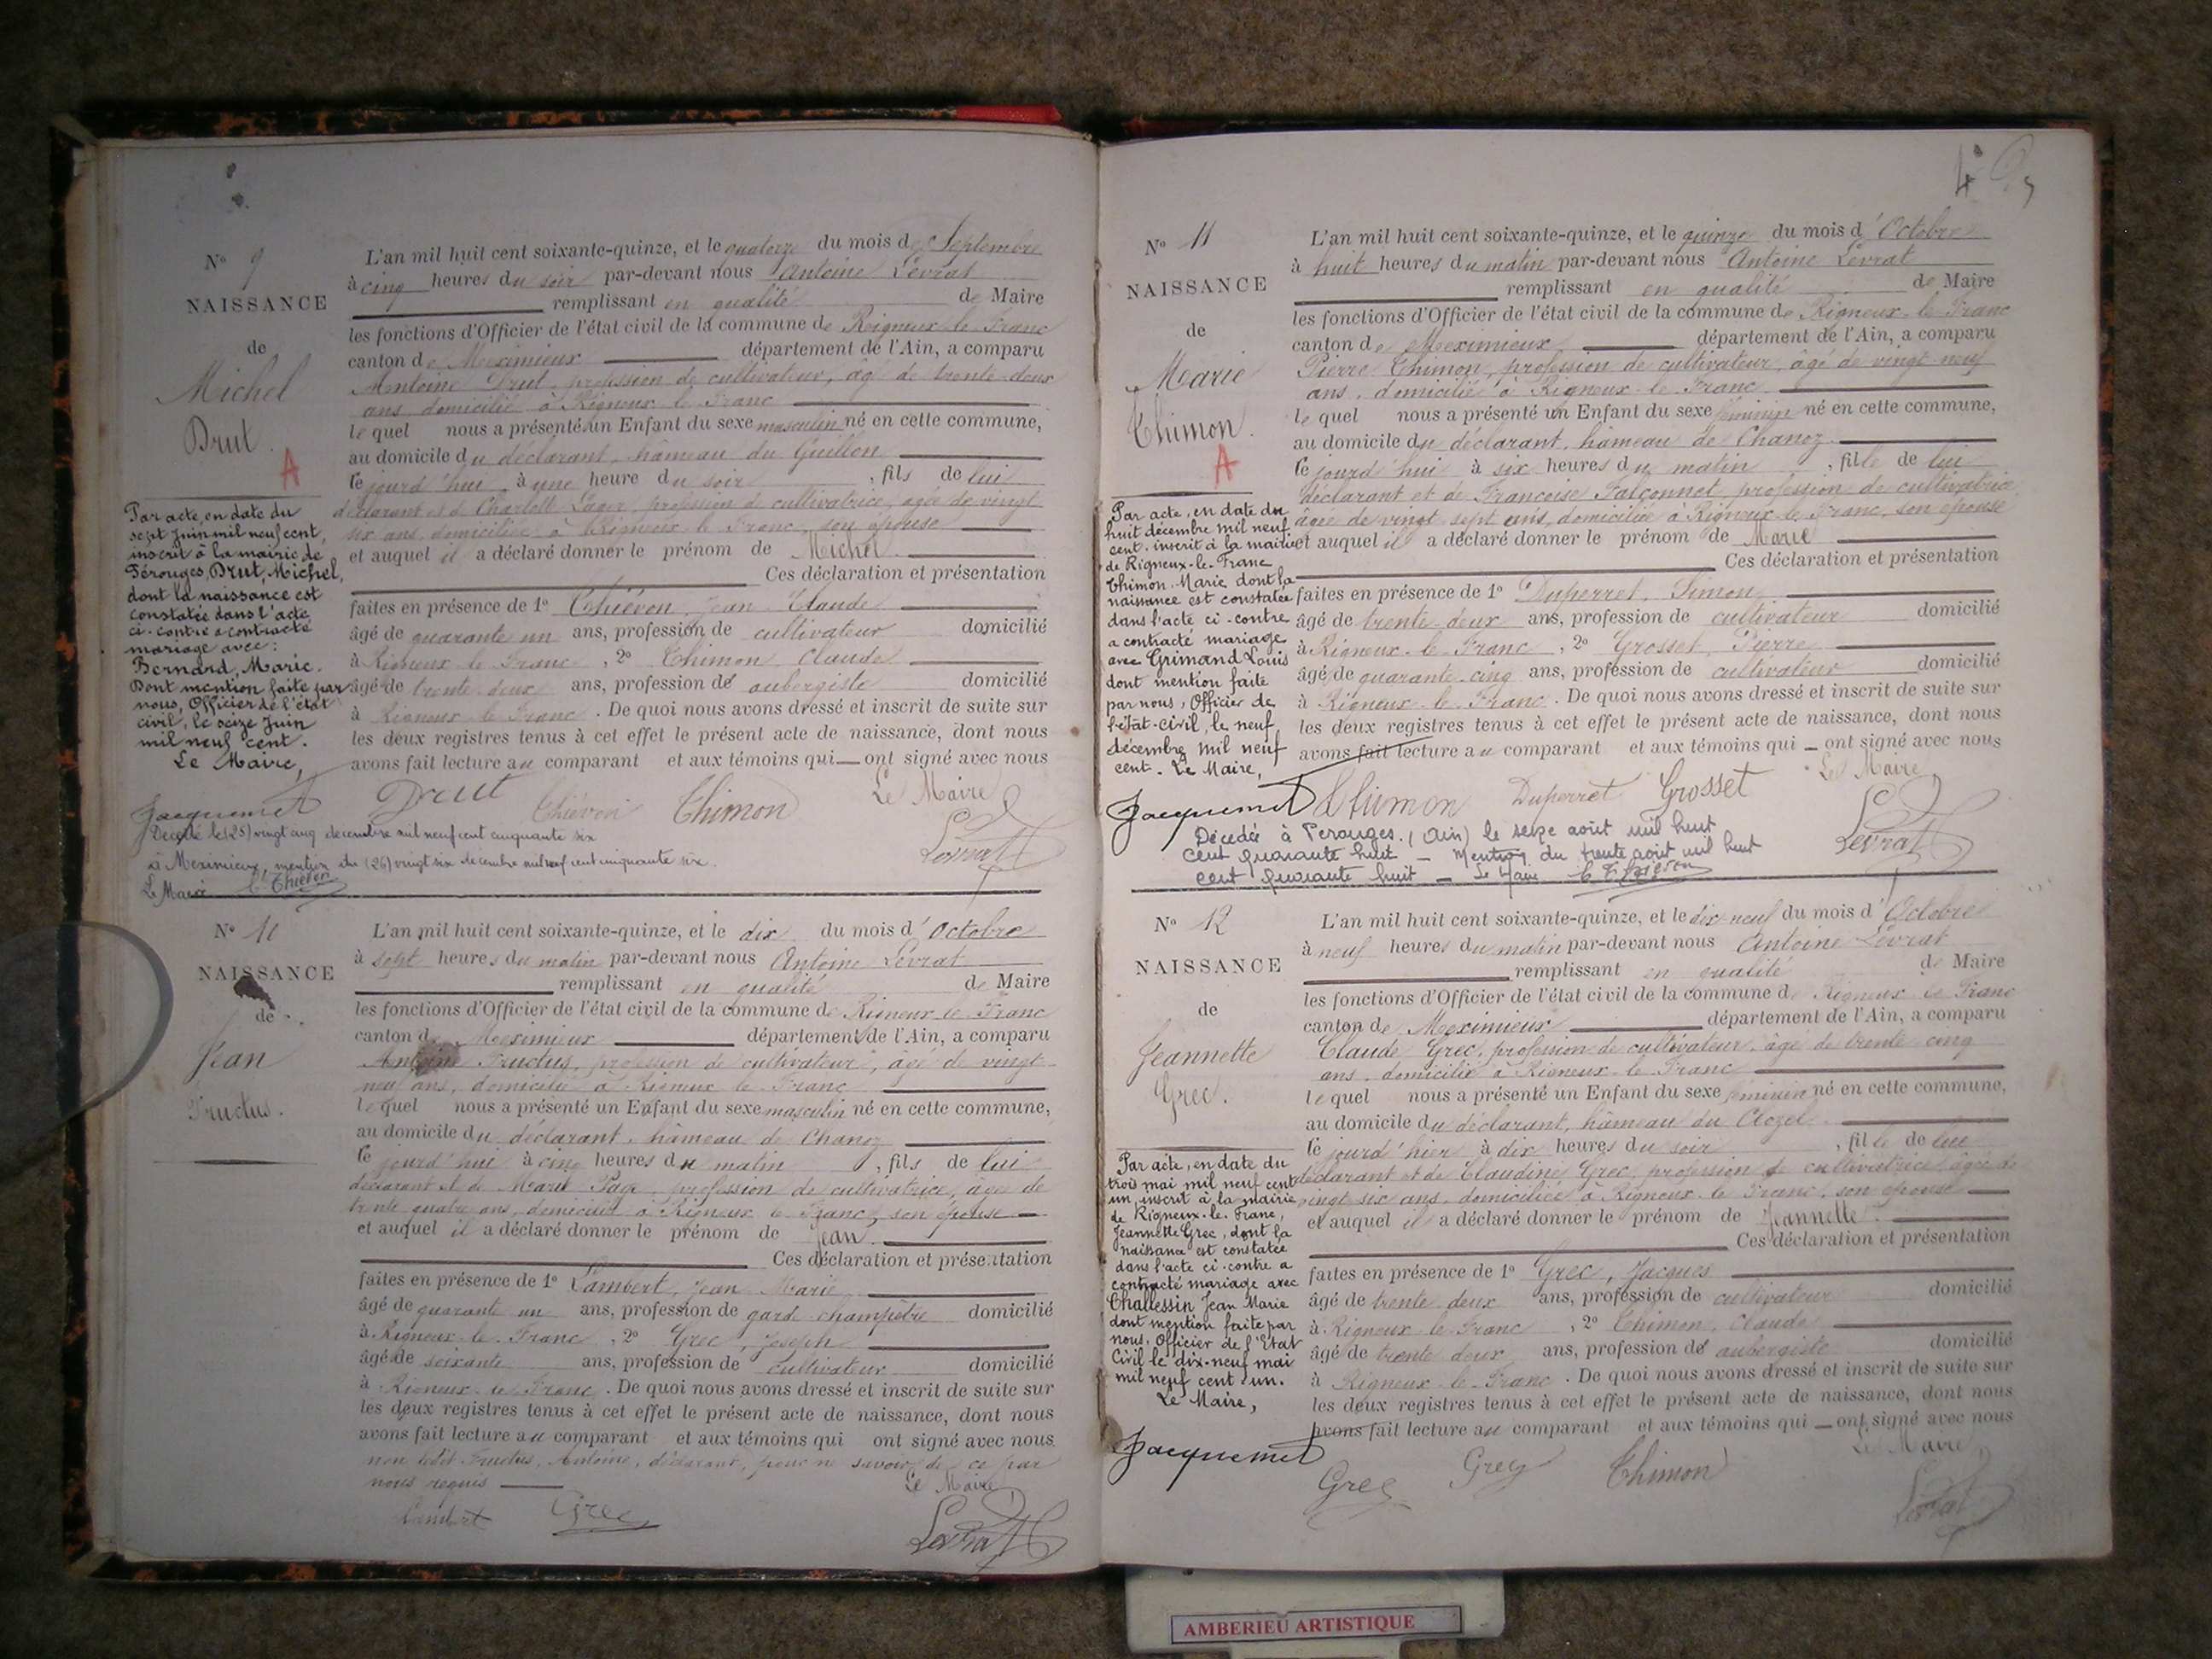 N° 9
NAISSANCE
de
Michel
Drut.
A
Par acte, en date du
sept Juin mil neuf cent,
inscrit à la mairie de
Pérouges, Drut, Michel,
dont la naissance est
constatée dans l'acte
ci-contre a contracté
mariage avec:
Bernand, Marie.
Dont mention faite par
nous, Officier de l'état
civil, le seize Juin
mil neuf cent.
Le Maire,
Jacquemet
L'an mil huit cent soixante-quinze, et le quatorze du mois de Septembre
à cinq heures du soir par-devant nous Antoine Levrat
remplissant en qualité de Maire
les fonctions d'Officier de l'état civil de la commune de Rigneux le Franc
canton de Meximieux département de l'Ain, a comparu
Antoine Drut, profession de cultivateur, âgé de trente-deux
ans domicilié à Rigneux le Franc
lequel nous a présenté un Enfant du sexe masculin né en cette commune,
au domicile du déclarant, hâmeau du Guillon
ce jourd'hui à une heure du soir, fils de lui
déclarant et de Charlott Lager, profession de cultivatrice, agée de vingt
six ans, domiciliée à Rigneux le Franc, son épouse
et auquel il a déclaré donner le prénom de Michel.
Ces déclaration et présentation
faites en présence de 1° Thiévon, Jean Claude
âgé de quarante un ans, profession de cultivateur domicilié
à Rigneux le Franc, 2° Thimon Claude
âgé de trente deux ans, profession de aubergiste domicilié
à Rigneux le Franc. De quoi nous avons dressé et inscrit de suite sur
les deux registres tenus à cet effet le présent acte de naissance, dont nous
avons fait lecture au comparant et aux témoins qui ont signé avec nous
Le Maire
Drut Thiévon Thimon Levrat
Décédé le (25) vingt cinq décembre mil neuf cent cinquante six
à Meximieux, mention du (26) vingt six décembre mil neuf cent cinquante six.
Le Maire
N° 10
NAISSANCE
de
Jean
Fructus.
L'an mil huit cent soixante-quinze, et le dix du mois d'Octobre
à sept heures du matin par-devant nous Antoine Levrat
remplissant en qualité de Maire
les fonctions d'Officier de l'état civil de la commune de Rigneux le Franc
canton de Meximieux département de l'Ain, a comparu
Antoine Fructus, profession de cultivateur, âgé de vingt
neuf ans, domicilié à Rigneux le Franc
lequel nous a présenté un Enfant du sexe masculin né en cette commune,
au domicile du déclarant, hâmeau de Chanoz
ce jourd'hui à cinq heures du matin, fils de lui
déclarant et de Marie Page, profession de cultivatrice, agée de
trente quatre ans, domiciliée à Rigneux le Franc, son épouse
et auquel il a déclaré donner le prénom de Jean.
Ces déclaration et présentation
faites en présence de 1° Lambert, Jean Marie
âgé de quarante un ans, profession de gard champêtre domicilié
à Rigneux le Franc, 2° Grec, Joseph
âgé de soixante ans, profession de cultivateur domicilié
à Rigneux le Franc. De quoi nous avons dressé et inscrit de suite sur
les deux registres tenus à cet effet le présent acte de naissance, dont nous
avons fait lecture au comparant et aux témoins qui ont signé avec nous
non ledit Fructus, Antoine, déclarant, pour ne savoir de ce par
nous requis
Le Maire
Lambert Grec Levrat
4
N° 11
NAISSANCE
de
Marie
Thimon.
A
Par acte, en date du
huit décembre mil neuf
cent, inscrit à la mairie
de Rigneux-le-Franc
Thimon Marie dont la
naissance est constatée
dans l'acte ci-contre
a contracté mariage
avec Grimand Louis
dont mention faite
par nous, Officier de
l'état-civil, le neuf
décembre mil neuf
cent. Le Maire,
Jacquemet
L'an mil huit cent soixante-quinze, et le quinze du mois d'Octobre
à huit heures du matin par-devant nous Antoine Levrat
remplissant en qualité de Maire
les fonctions d'Officier de l'état civil de la commune de Rigneux le Franc
canton de Meximieux département de l'Ain, a comparu
Pierre Thimon, profession de cultivateur, âgé de vingt-neuf
ans, domicilié à Rigneux le Franc
lequel nous a présenté un Enfant du sexe féminin né en cette commune,
au domicile du déclarant, hâmeau de Chanoz
ce jourd'hui à six heures du matin, fille de lui
déclarant et de Françoise Falconnet, profession de cultivatrice,
âgée de vingt-sept ans, domiciliée à Rigneux le Franc, son épouse
et auquel il a déclaré donner le prénom de Marie
Ces déclaration et présentation
faites en présence de 1° Duperret, Simon
âgé de trente-deux ans, profession de cultivateur domicilié
à Rigneux le Franc, 2° Grosset, Pierre
âgé de quarante-cinq ans, profession de cultivateur domicilié
à Rigneux le Franc. De quoi nous avons dressé et inscrit de suite sur
les deux registres tenus à cet effet le présent acte de naissance, dont nous
avons fait lecture au comparant et aux témoins qui ont signé avec nous
Le Maire
Thimon Duperret Grosset Levrat
Décédée à Perouges (Ain) le seize août mil huit
cent quarante huit - Mention du trente août mil huit
cent quarante huit - Le Maire
N° 12
NAISSANCE
de
Jeannette
Grec.
Par acte, en date du
trois mai mil neuf cent
un, inscrit à la mairie
de Rigneux-le-Franc,
Jeannette Grec, dont la
naissance est constatée
dans l'acte ci-contre a
contracté mariage avec
Challessin Jean Marie
dont mention faite par
nous, Officier de l'Etat
Civil le dix-neuf mai
mil neuf cent un.
Le Maire,
Jacquemet
L'an mil huit cent soixante-quinze, et le dix-neuf du mois d'Octobre
à neuf heures du matin par-devant nous Antoine Levrat
remplissant en qualité de Maire
les fonctions d'Officier de l'état civil de la commune de Rigneux le Franc
canton de Meximieux département de l'Ain, a comparu
Claude Grec, profession de cultivateur, âgé de trente-cinq
ans, domicilié à Rigneux le Franc
lequel nous a présenté un Enfant du sexe féminin né en cette commune,
au domicile du déclarant, hâmeau du Clozel
ce jourd'hier à dix heures du soir, fille de lui
déclarant et de Claudine Grec, profession de cultivatrice, agée de
vingt six ans, domiciliée à Rigneux le Franc, son épouse
et auquel il a déclaré donner le prénom de Jeannette.
Ces déclaration et présentation
faites en présence de 1° Grec, Jacques
âgé de trente deux ans, profession de cultivateur domicilié
à Rigneux le Franc, 2° Thimon, Claude
âgé de trente deux ans, profession de aubergiste domicilié
à Rigneux le Franc. De quoi nous avons dressé et inscrit de suite sur
les deux registres tenus à cet effet le présent acte de naissance, dont nous
avons fait lecture au comparant et aux témoins qui ont signé avec nous
Le Maire
Grec Grec Thimon Levrat
AMBERIEU ARTISTIQUE